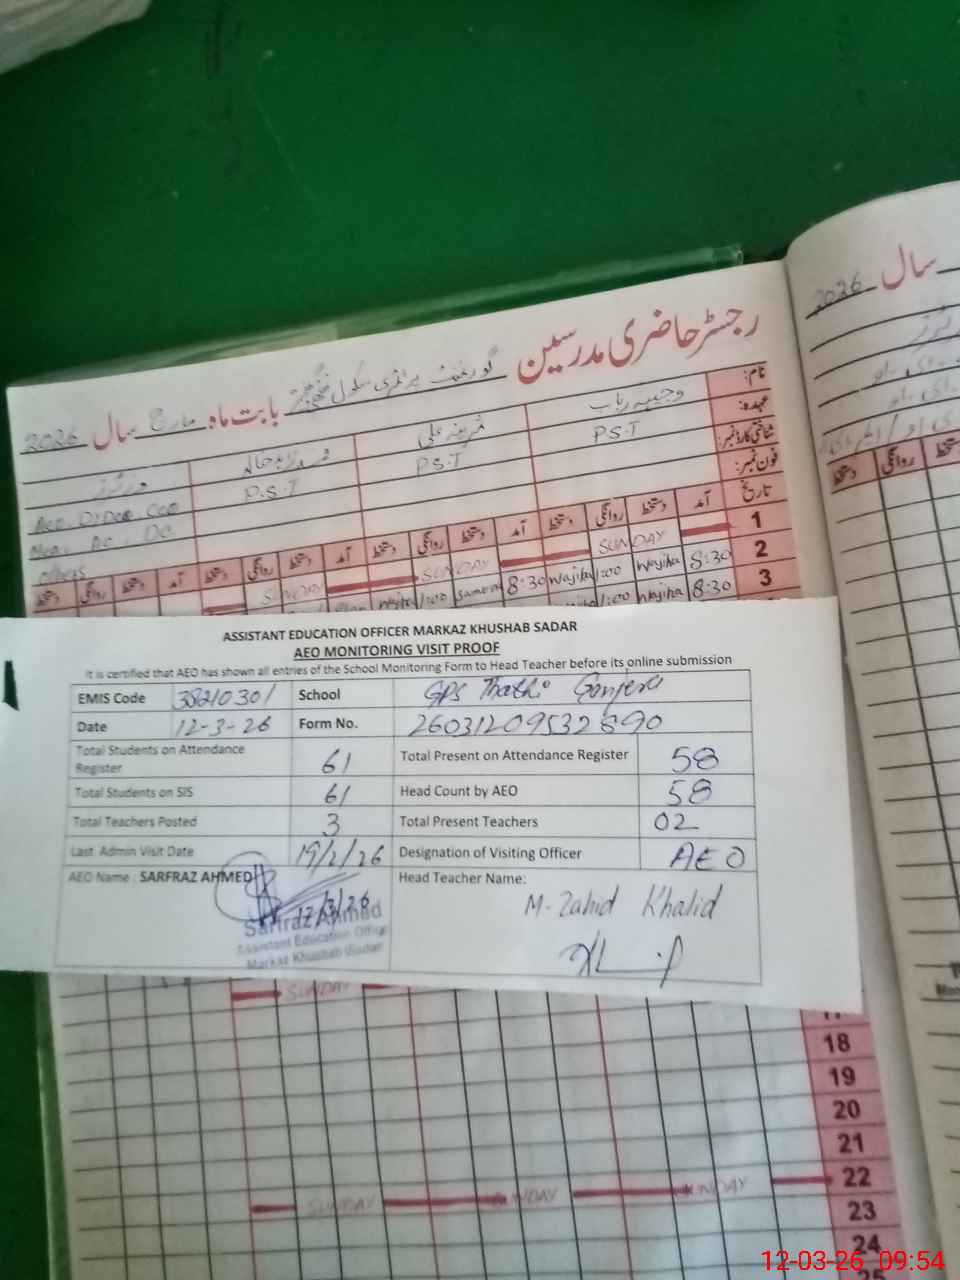 رجسٹر حاضری مدرسین گورنمنٹ پرائمری سکول بابت ماہ مارچ سال 2026
سال 2026
نام:
عہدہ:
شناختی کارڈ نمبر:
فون نمبر:
وجیہہ رباب
P.S.T
علی
P.S.T
P.S.T
وزیٹرز
AEO, D/DEO, CEO
MEA, AC, DC
others
تاریخ آمد دستخط روانگی دستخط آمد دستخط روانگی دستخط آمد دستخط روانگی دستخط آمد دستخط روانگی دستخط
دستخط روانگی دستخط
1 SUNDAY SUNDAY SUNDAY
2 8:30 Wajiha 1:00 Wajiha 8:30
3 8:30 Wajiha 1:00
ASSISTANT EDUCATION OFFICER MARKAZ KHUSHAB SADAR
AEO MONITORING VISIT PROOF
It is certified that AEO has shown all entries of the School Monitoring Form to Head Teacher before its online submission
EMIS Code 38210301 School GPS Thathi Ganjera
Date 12-3-26 Form No. 26031209532890
Total Students on Attendance Register 61 Total Present on Attendance Register 58
Total Students on SIS 61 Head Count by AEO 58
Total Teachers Posted 3 Total Present Teachers 02
Last Admin Visit Date 19/2/26 Designation of Visiting Officer AEO
AEO Name : SARFRAZ AHMED Head Teacher Name:
12/3/26 M-Zahid Khalid
Sarfraz Ahmed
Assistant Education Officer
Markaz Khushab Sadar
SUNDAY
17
18
19
20
21
22 SUNDAY SUNDAY SUNDAY
23
24
25
12-03-26 09:54